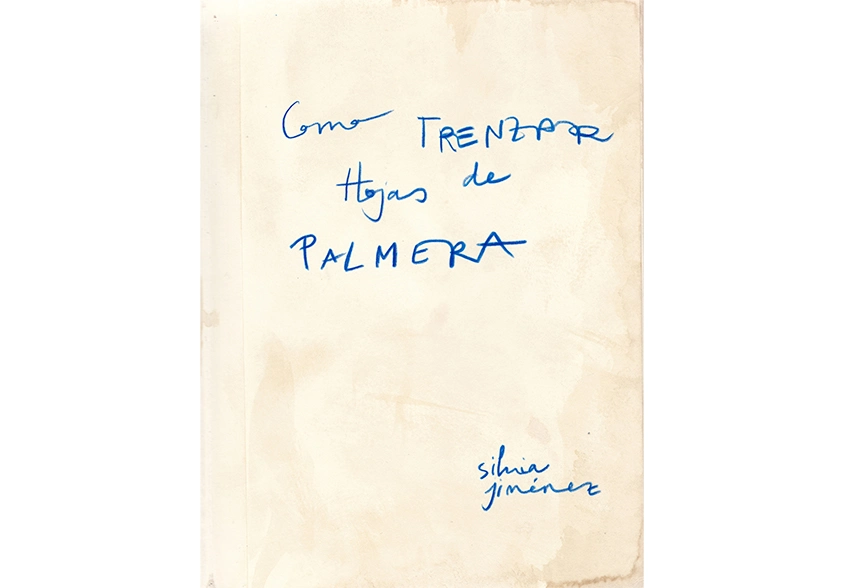 Como TRENZAR
Hojas de
PALMERA
silvia
jiménez